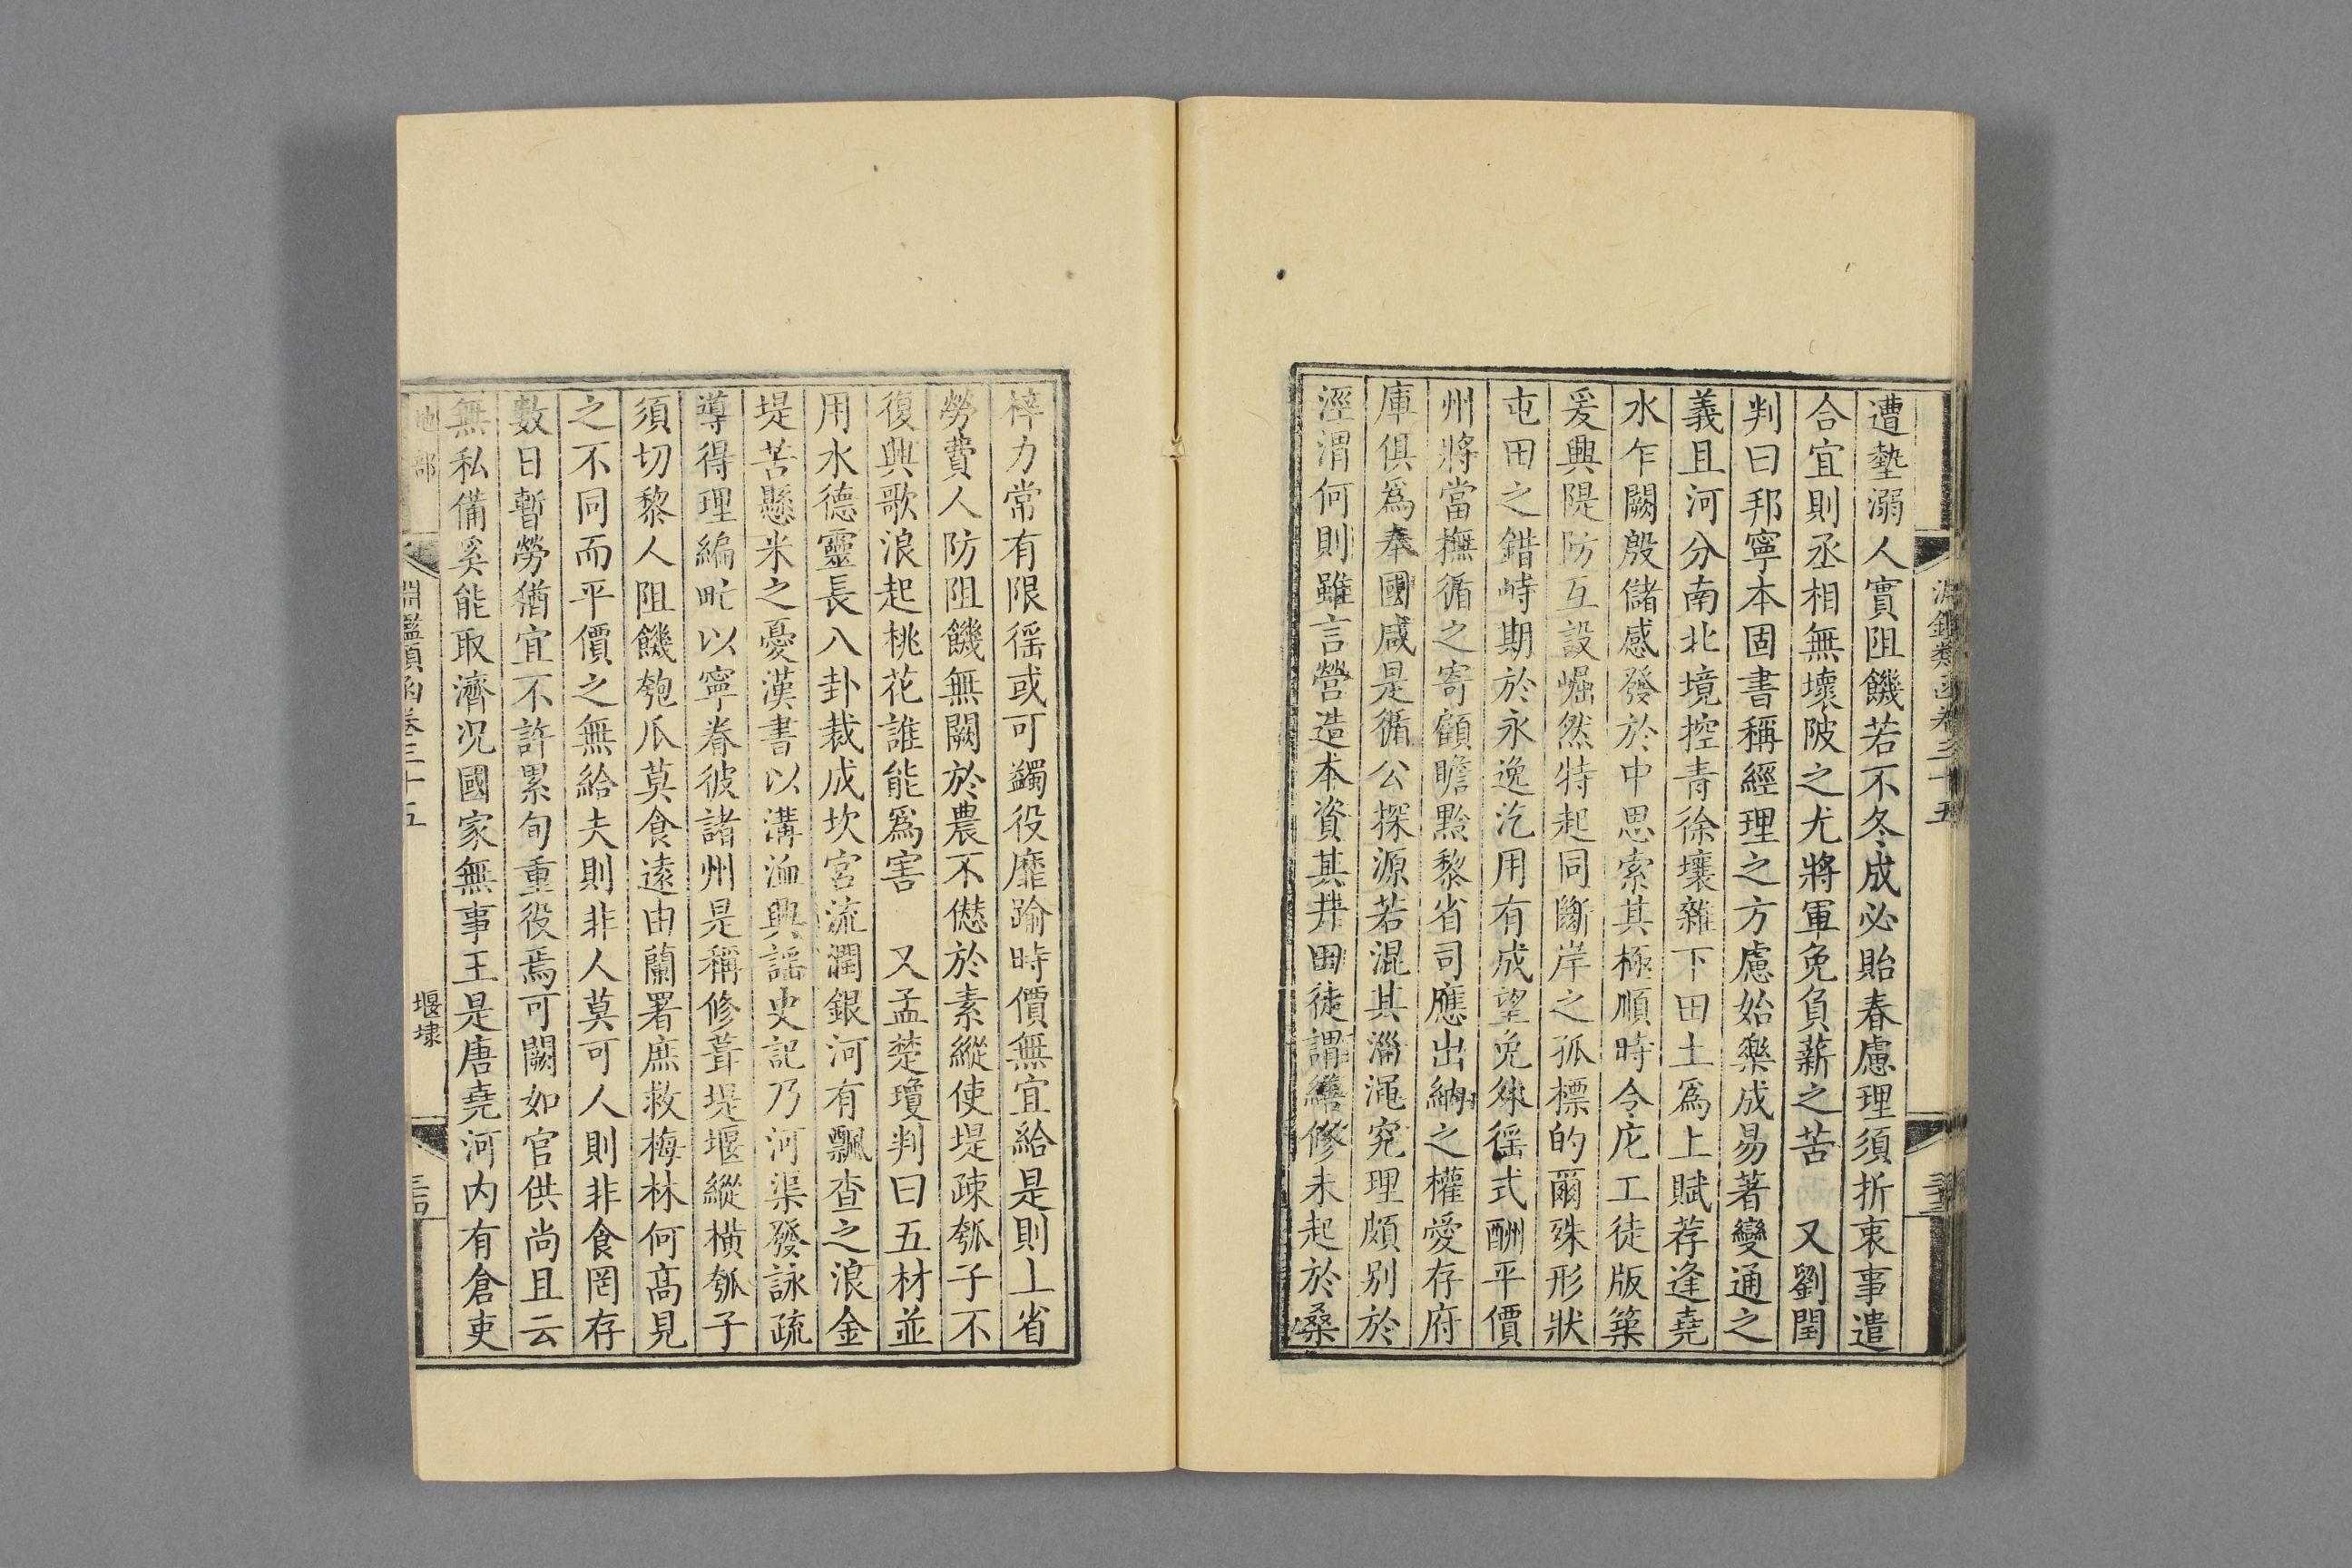 遭墊溺人實阻饑若不冬成必貽春慮理須折衷事遣
合宜則丞相無壞陂之尤將軍免負薪之苦　又劉閏
判曰邦寧本固書稱經理之方慮始樂成易著變通之
義且河分南北境控青徐壤雜下田土爲上賦荐逢堯
水乍闕殷儲感發於中思索其極順時令庀工徒版築
爰興隄防互設崛然特起同斷岸之孤標的爾殊形狀
屯田之錯峙期於永逸汔用有成望免殊徭式酬平價
州將當撫循之寄顧瞻黔黎省司應出納之權愛存府
庫俱爲奉國咸是循公探源若混其淄澠究理頗別於
涇渭何則雖言營造本資其井田徒謂繕修未起於桑
梓力常有限徭或可蠲役靡踰時價無宜給是則上省
勞費人防阻饑無闕於農不愆於素縱使堤疎瓠子不
復興歌浪起桃花誰能爲害　又孟楚瓊判曰五材並
用水德靈長八卦裁成坎宮流潤銀河有飄查之浪金
堤苦懸米之憂漢書以溝洫興謡史記乃河渠發詠疏
導得理編甿以寧眷彼諸州是稱修葺堤堰縱橫瓠子
須切黎人阻饑匏瓜莫食遠由蘭署庶救梅林何高見
之不同而平價之無給夫則非人莫可人則非食罔存
數日暫勞猶宜不許累旬重役焉可闕如官供尚且云
無私備奚能取濟況國家無事王是唐堯河内有倉吏
地部
淵鑑類函卷三十五
堰埭
淵鑑類函卷三十五